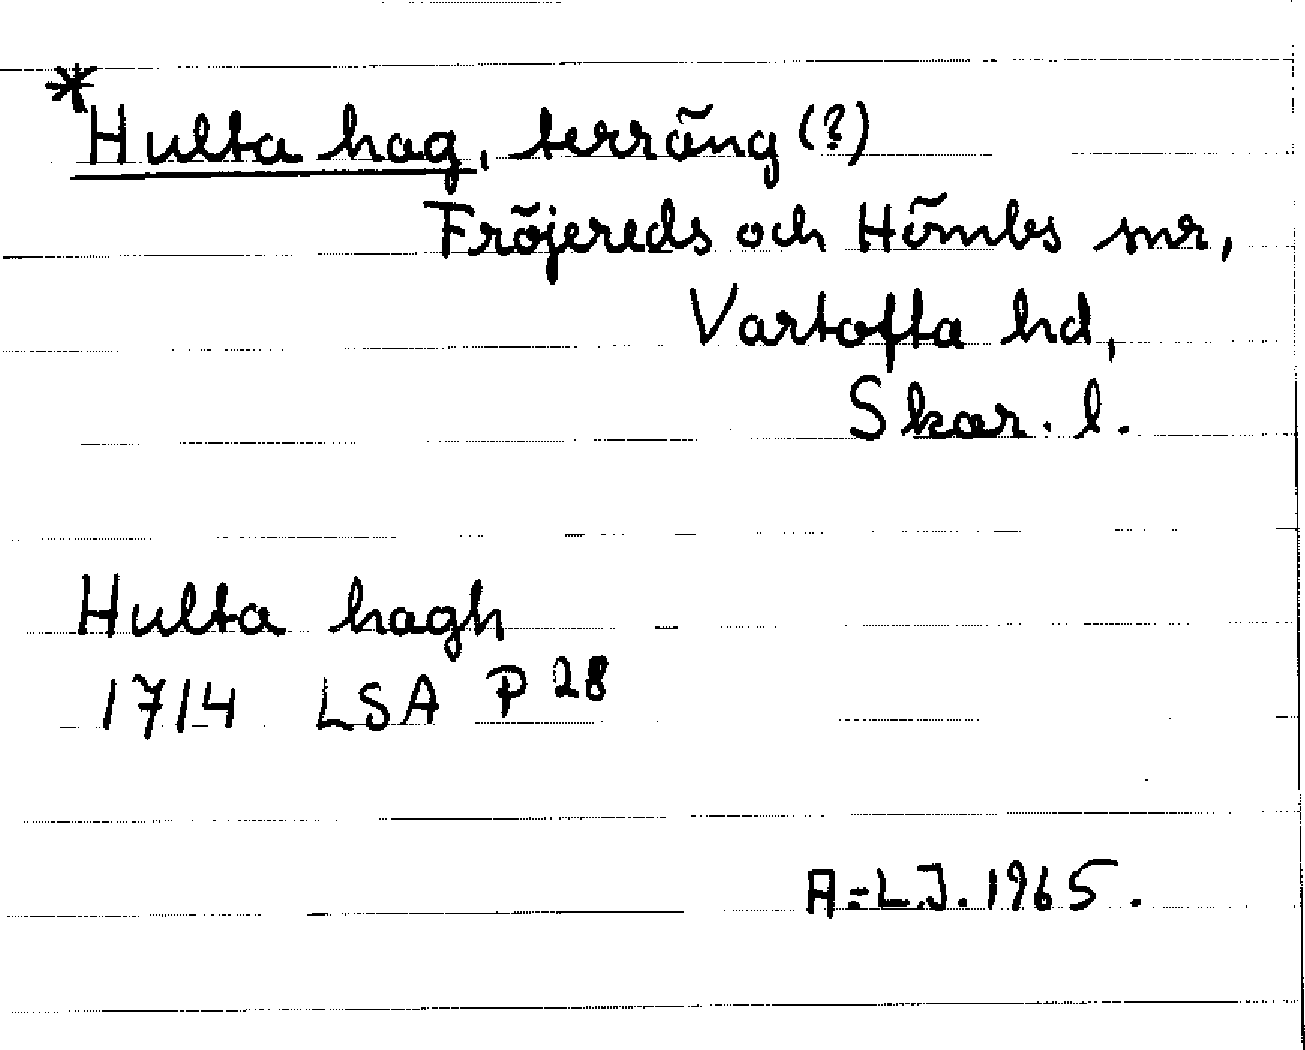 *Hulta hag, terräng (?)
Fröjereds och Hömbs snr,
Vartofta hd,
Skar. l.
Hulta hagh
1714 LSA P 28
A-L.J. 1965.